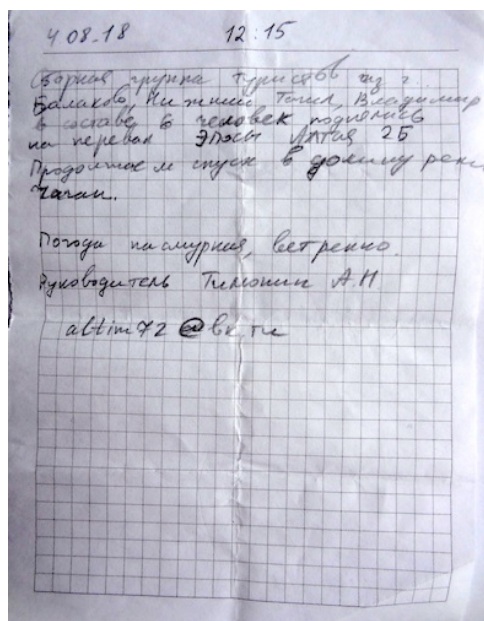 4.08.18 12:15
Сборная группа туристов из г.
Балаково, Нижний Тагил, Владимир
в составе 6 человек поднялись
на перевал Эпосы Алтая 2Б
Продолжаем спуск в долину реки
Чаган.
Погода пасмурная, ветренно.
Руководитель Тимонин А.Н
altim72@вк.ru